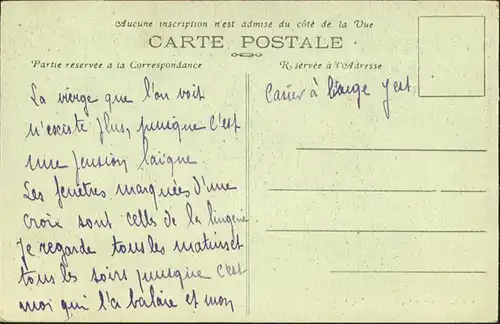 Aucune inscription n'est admise du côté de la Vue
CARTE POSTALE
Partie reservée a la Correspondance
Réservée à l'Adresse
La vierge que l'on voit
n'existe plus, puisque c'est
une pension laïque.
Les fenêtres marquées d'une
croix sont celles de la lingerie
Je regarde tous les matins et
tous les soirs puisque c'est
moi qui la balaie et mon
casier à linge y est